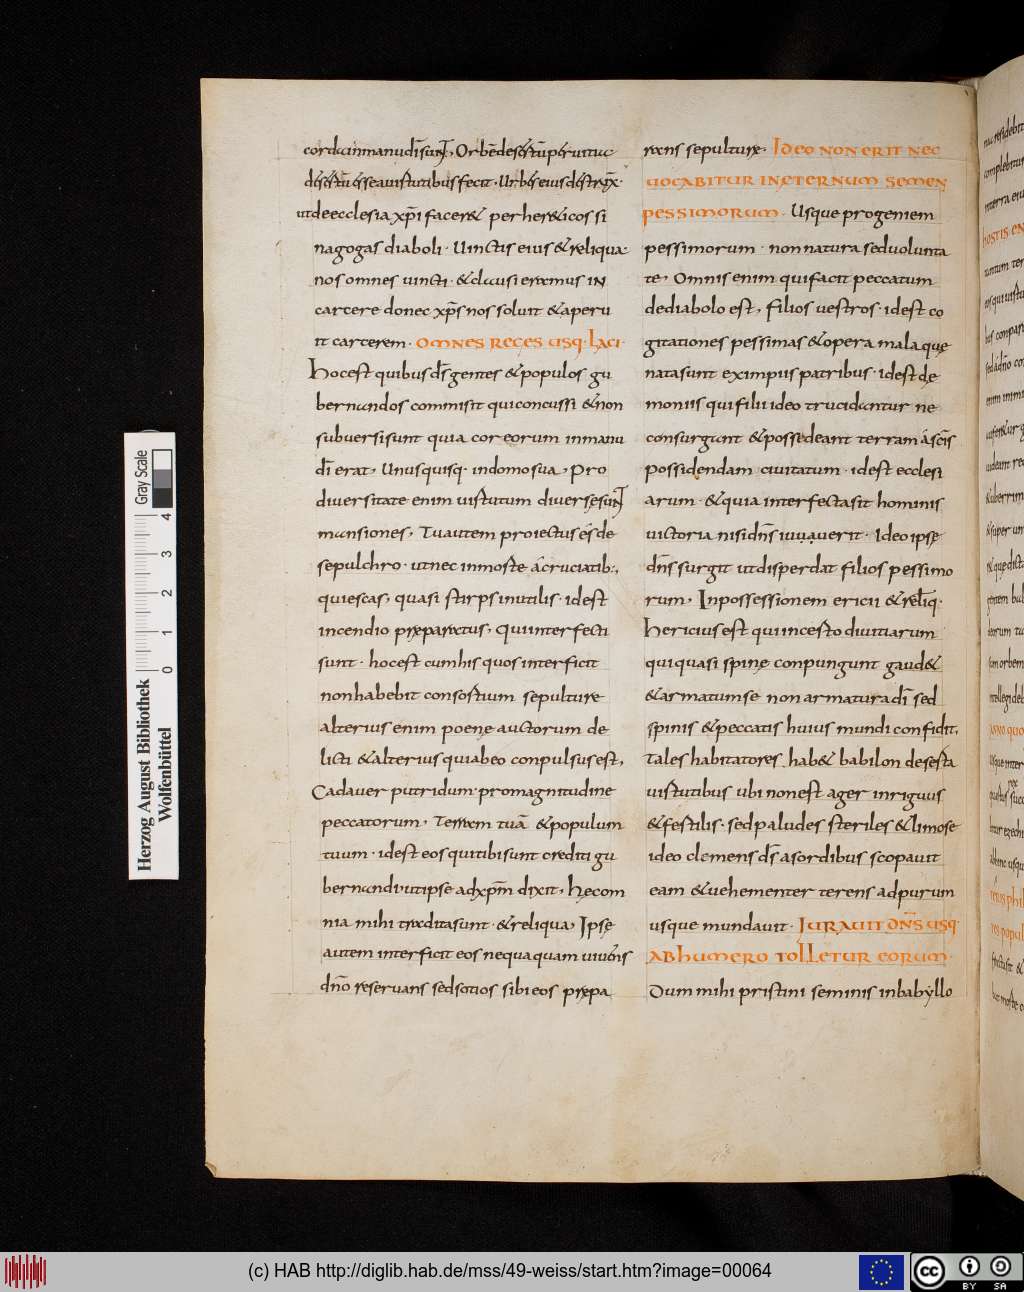 corda in manu di sunt, Orbe desertu p uirtuti
desertu esse a uirtutibus fecit. Urbes eius destrux
ut de ecclesia xpi facer& per her&icos si
nagogas diaboli. Uinctis eius & reliqua.
nos omnes uincti. & clausi eramus IN
carcere donec xps nos soluit & aperu
it carcerem. OMNES REGES USQ. LACI.
hoc est quibus ds gentes & populos gu
bernandos commisit qui concussi & non
subuersi sunt quia cor eorum in manu
di erat, Unusquisq. in domo sua, pro
diuersitate enim uirtutum diuerse sunt
mansiones, Tu autem proiectus es de
sepulchro. ut nec in morte a cruciatib;
quiescas, quasi stirps inutilis. id est
incendio preparatus, Qui interfecti
sunt. hoc est cum his quos interficit
non habebit consortium sepulture
alterius enim poene auctorum de
licti & alterius qui ab eo conpulsus est,
Cadauer putridum. pro magnitudine
peccatorum, Terram tua & populum
tuum. id est eos qui tibi sunt crediti gu
bernandi. ut ipse ad xpm dixit, hec om
nia mihi tradita sunt. & reliqua, Ipse
autem interficit eos nequaquam uiuens
dno reseruans sed sotios sibi eos prepa
rans sepulture. Ideo NON ERIT NEC
UOCABITUR IN ETERNUM SEMEN
PESSIMORUM. Usque progeniem
pessimorum. non natura sed uolunta
te, Omnis enim qui facit peccatum
de diabolo est, filios uestros. id est co
gitationes pessimas & opera mala que
nata sunt ex impiis patribus. id est de
moniis qui filii ideo trucidantur ne
consurgant & possedeant terram a scis
possidendam ciuitatum. id est ecclesi
arum. & quia interfecta sit hominis
uictoria nisi dns iuuauerit. Ideo ipse
dns surgit ut disperdat filios pessimo
rum, In possessionem ericii & reliq.
hericius est qui incerto diuitiarum
qui quasi spine conpungunt gaud&
& armatum se non armatura di sed
spinis & peccatis huius mundi confidit,
Tales habitatores hab& babilon deserta
uirtutibus ubi non est ager inriguus
& fertilis. sed paludes steriles & limose
ideo clemens ds a sordibus scopauit
eam & uehementer terens ad purum
usque mundauit. IURAUIT DNS USQ.
AB HUMERO TOLLETUR EORUM.
Dum mihi pristini seminis in babyllo
Gray Scale
0 1 2 3 4
Herzog August Bibliothek
Wolfenbüttel
(c) HAB http://diglib.hab.de/mss/49-weiss/start.htm?image=00064
cc BY SA